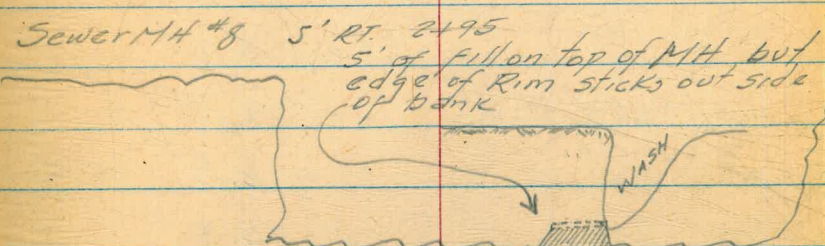 Sewer MH #8 5' RT. 2+95
5' of Fill on top of MH, but
edge of Rim sticks out side
of bank
WASH